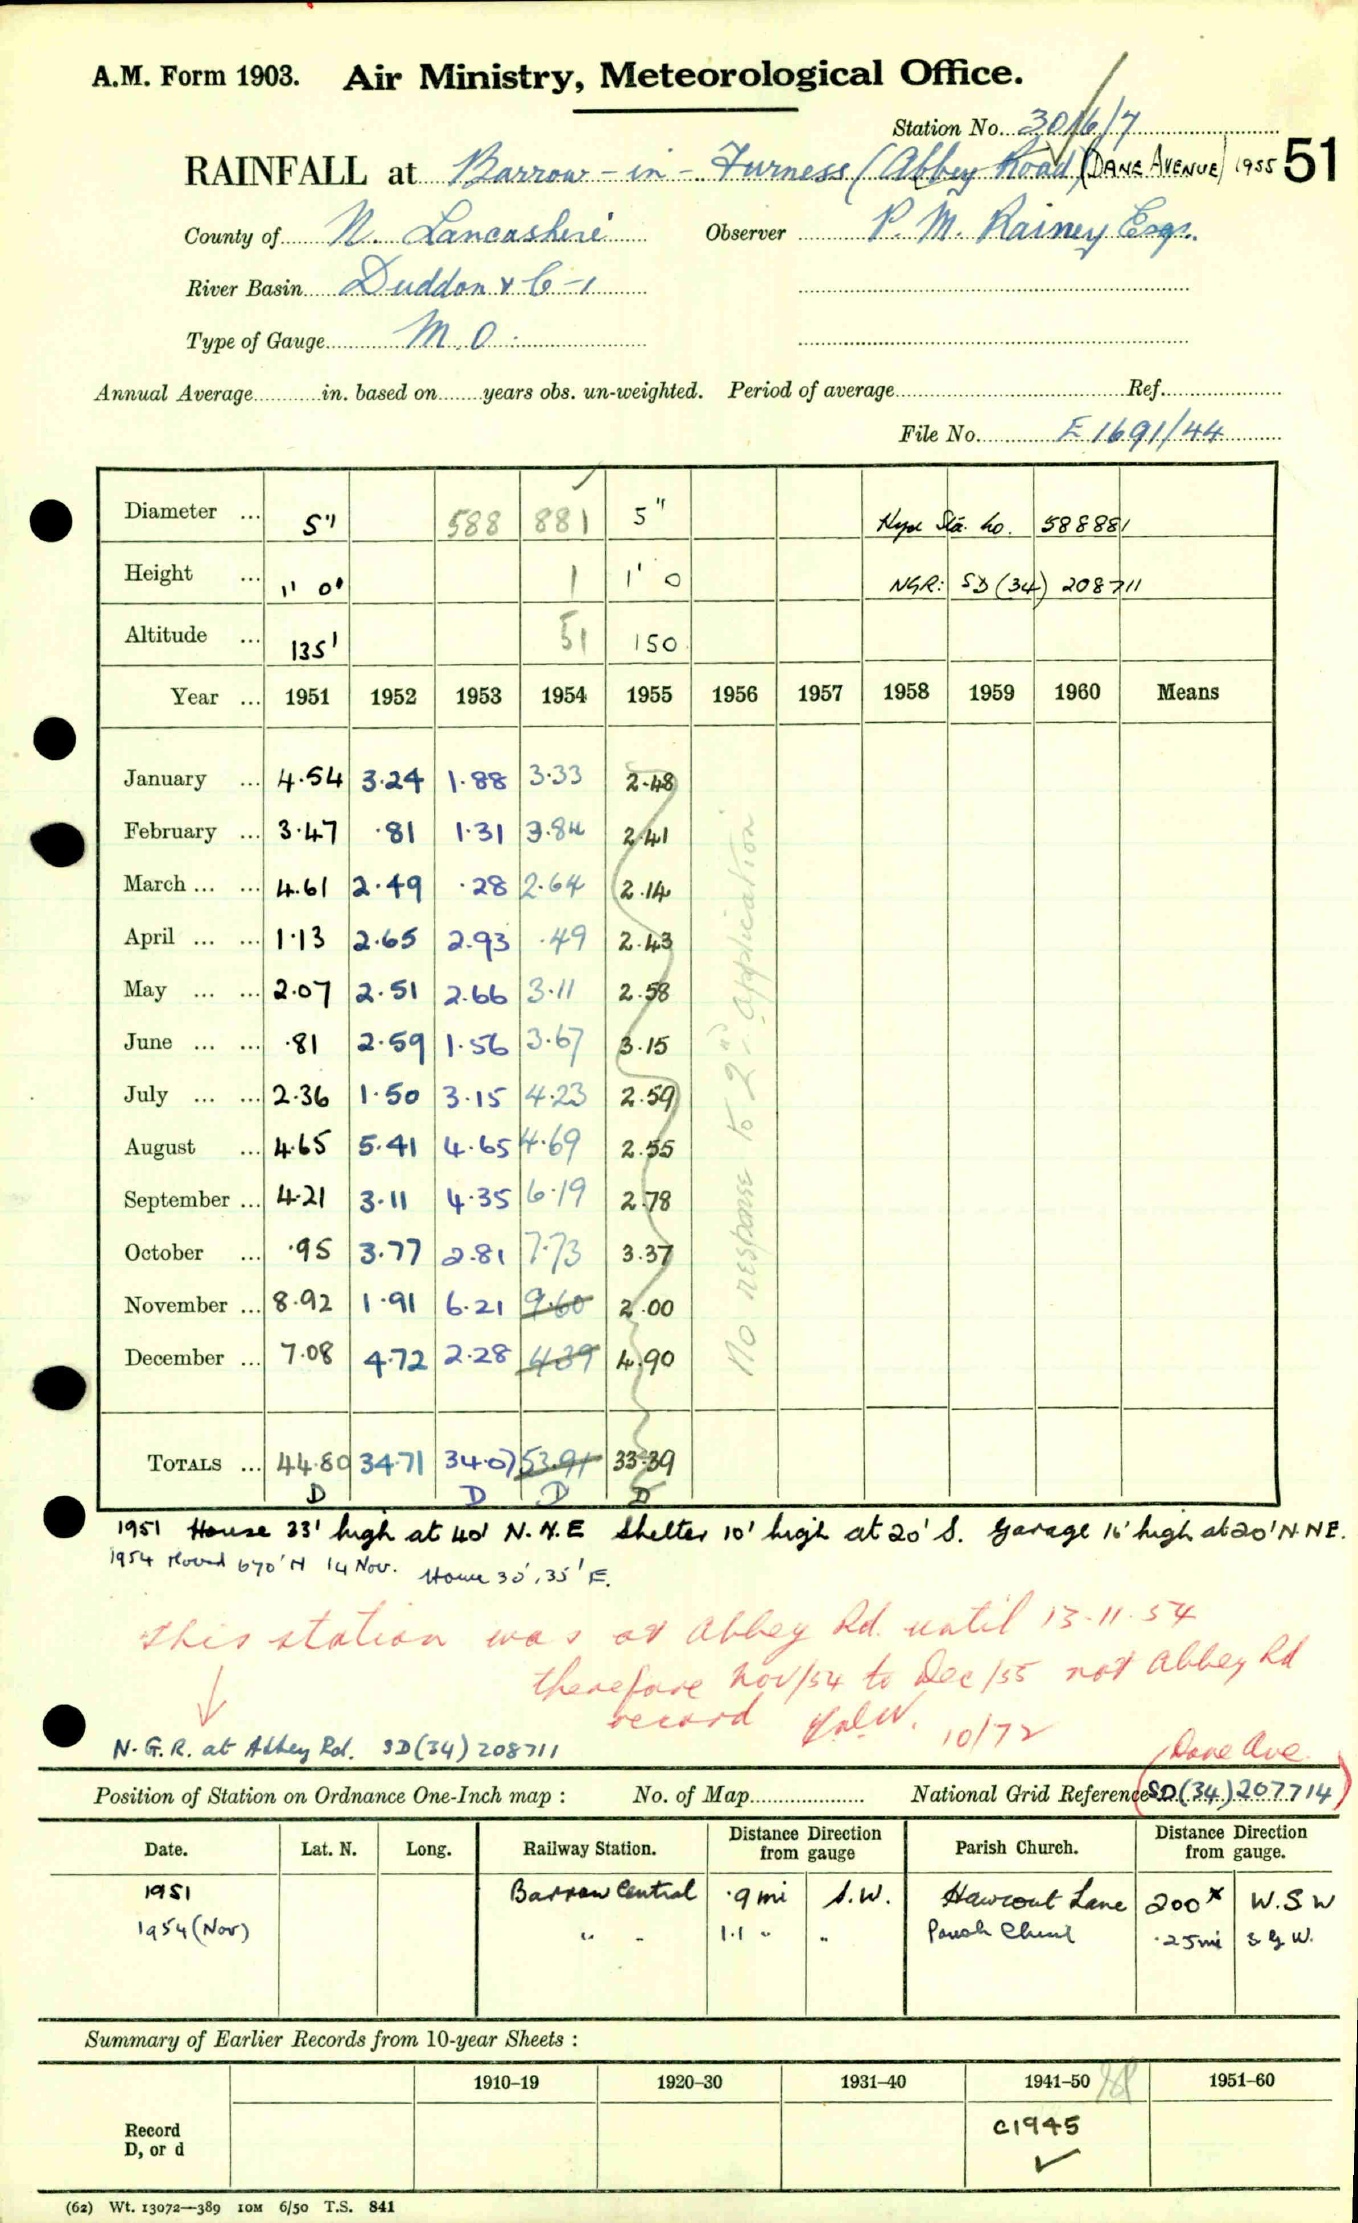 A.M. Form 1903. Air Ministry, Meteorological Office.
Station No. 3016/7
RAINFALL at Barrow-in-Furness (Abbey Road) (DANE AVENUE) 1955 51
County of N. Lancashire Observer P. M. Rainey Esq.
River Basin Duddon & C-1
Type of Gauge M.O.
Annual Average in. based on years obs. un-weighted. Period of average Ref.
File No. E 1691/44
Diameter ... 5" 588 881 5" Hyd Sta. No. 588881
Height ... 1' 0" 1 1' 0 NGR: SD (34) 208711
Altitude ... 135' 51 150
Year ... 1951 1952 1953 1954 1955 1956 1957 1958 1959 1960 Means
January ... 4.54 3.24 1.88 3.33 2.48
February ... 3.47 .81 1.31 3.84 2.41
March ... ... 4.61 2.49 .28 2.64 2.14
April ... ... 1.13 2.65 2.93 .49 2.43
May ... ... 2.07 2.51 2.66 3.11 2.58
June ... ... .81 2.59 1.56 3.67 3.15
July ... ... 2.36 1.50 3.15 4.23 2.59
August ... 4.65 5.41 4.65 4.69 2.55
September ... 4.21 3.11 4.35 6.19 2.78
October ... .95 3.77 2.81 7.73 3.37
November ... 8.92 1.91 6.21 9.60 2.00
December ... 7.08 4.72 2.28 4.39 4.90
No response to 2nd application
TOTALS ... 44.80 34.71 34.07 53.91 33.39
D D D D
1951 House 33' high at 40' N.N.E Shelter 10' high at 20' S. Garage 16' high at 20' N.NE.
1954 Moved 670' N 14 Nov. House 30', 35' E.
This station was at Abbey Rd. until 13.11.54
therefore Nov/54 to Dec/55 not Abbey Rd
record 10/72
N.G.R. at Abbey Rd. SD (34) 208711
Dane Ave.
Position of Station on Ordnance One-Inch map : No. of Map National Grid Reference SD (34) 207714
Date. Lat. N. Long. Railway Station. Distance from Direction gauge Parish Church. Distance from Direction gauge.
1951 Barrow Central .9 mi S.W. Hawcoat Lane 200x W.S W
1954 (Nov) " " 1.1 " " Parish Church .25 mi S by W.
Summary of Earlier Records from 10-year Sheets :
1910–19 1920–30 1931–40 1941–50 1951–60
Record
D, or d
c1945
(62) Wt. 13072—389 10M 6/50 T.S. 841